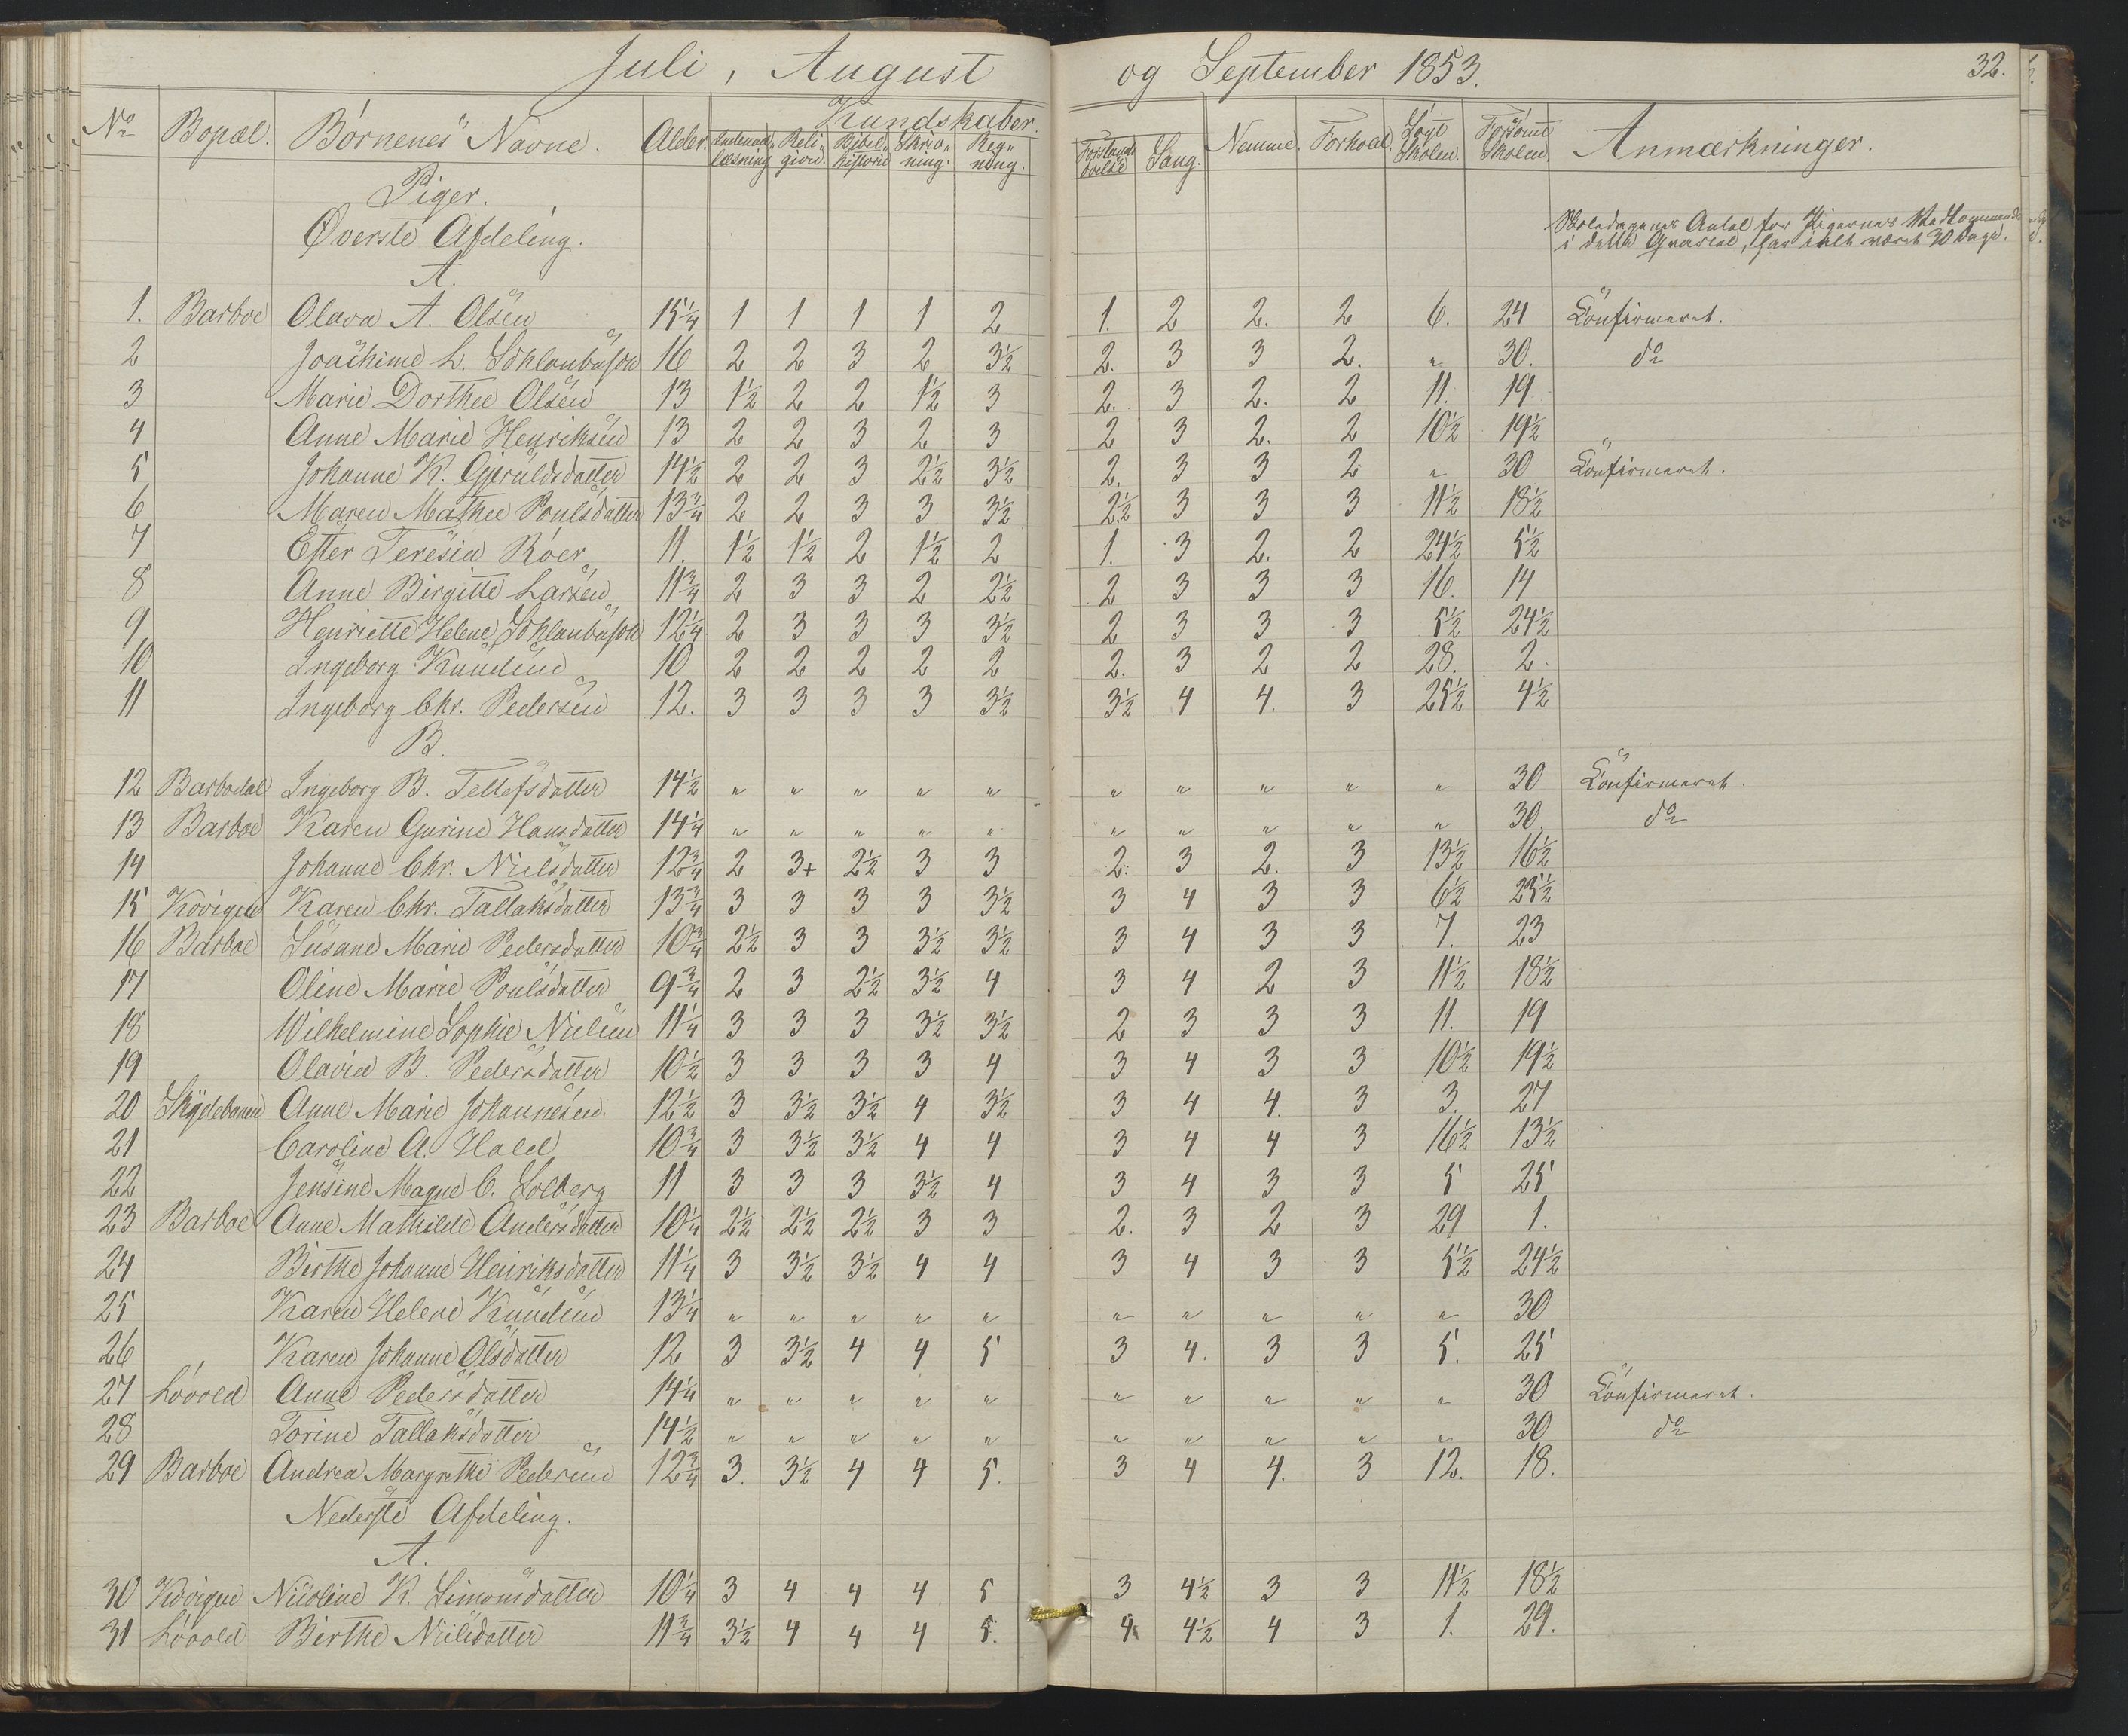 Juli, August og September 1853. 32.
No Bopæl. Børnenes Navne. Alder. Kundskaber. Nemme. Forhold. Søgt Skolen. Forsømt Skolen. Anmærkninger.
Indenad- læsning Reli- gion. Bibel- historie Skriv- ning. Reg- ning. Forstands øvelse Sang.
Piger.
Øverste Afdeling.
Skoledagenes Antal for Pigernes Vedkommende
i dette Qvartal, har i alt været 30 Dage.
A.
1. Barboe Olava A. Olsen 15 1/4 1 1 1 1 2 1. 2 2. 2 6. 24 Confirmeret.
2 Joachime L. 16 2 2 3 2 3½ 2. 3 3 2. " 30. do
3 Marie Dorthee Olsen 13 1½ 2 2 1½ 3 2. 3 2. 2 11. 19
4 Anne Marie Henriksen 13 2 2 3 2 3 2 3 2. 2 10½ 19½
5 Johanne K. Gjeruldsdatter 14½ 2 2 3 2½ 3½ 2. 3 3 2 " 30 Confirmeret.
6 Maren Mathee Poulsdatter 13 3/4 2 2 3 3 3½ 2½ 3 3 3 11½ 18½
7 Ester Teresia Röer 11. 1½ 1½ 2 1½ 2 1. 3 2. 2 24½ 5½
8 Anne Birgitte Larsen 11 3/4 2 3 3 2 2½ 2 3 3 3 16. 14
9 Henriette Helene 12 1/4 2 3 3 3 3½ 2 3 3 3 5½ 24½
10 Ingeborg Knudsen 10 2 2 2 2 2 2. 3 2 2 28. 2.
11 Ingeborg Chr. Pedersen 12. 3 3 3 3 3½ 3½ 4 4. 3 25½ 4½
B.
12 Barbodal Ingeborg B. Tellefsdatter 14½ " " " " " " " " " " 30 Confirmeret.
13 Barboe Karen Gurine Hansdatter 14 1/4 " " " " " " " " " " 30. do
14 Johanne Chr. Nielsdatter 12 3/4 2 3+ 2½ 3 3 2. 3 2. 3 13½ 16½
15 Kövigen Karen Chr. Tallaksdatter 13 3/4 3 3 3 3 3½ 3 4 3 3 6½ 23½
16 Barboe Susane Marie Pedersdatter 10 3/4 2½ 3 3 3½ 3½ 3 4 3 3 7. 23
17 Oline Marie Poulsdatter 9 3/4 2 3 2½ 3½ 4 3 4 2 3 11½ 18½
18 Wilhelmine Sophie Nielsen 11 1/4 3 3 3 3½ 3½ 2 3 3 3 11. 19
19 Olavia B. Pedersdatter 10½ 3 3 3 3 4 3 4 3 3 10½ 19½
20 Skydebanen Anne Marie Johannesen. 12½ 3 3½ 3½ 4 3½ 3 4 4. 3 3. 27
21 Caroline A. Hald 10 3/4 3 3½ 3½ 4 4 3 4 4 3 16½ 13½
22 Jensine Magne C. Solberg 11 3 3 3 3½ 4 3 4 3 3 5 25
23 Barboe Anne Mathilde Andersdatter 10 1/4 2½ 2½ 2½ 3 3 2. 3 2 3 29 1.
24 Birthe Johanne Henriksdatter 11 1/4 3 3½ 3½ 4 4 3 4 3 3 5½ 24½
25 Karen Helene Knudsen 13 1/4 " " " " " " " " " " 30
26 Karen Johanne Olsdatter 12 3 3½ 4 4 5 3 4. 3 3 5. 25
27 Lövold Anne Pedersdatter 14 1/4 " " " " " " " " " " 30 Confirmeret.
28 Torine Tallaksdatter 14½ " " " " " " " " " " 30 do
29 Barboe Andrea Margrethe Pedersen 12 3/4 3. 3½ 4 4 5. 3 4 4. 3 12. 18.
Nederste Afdeling.
A.
30 Kövigen Nicoline K. Simonsdatter 10 1/4 3 4 4 4 5 3 4½ 3 3 11½ 18½
31 Lövold Birthe Nielsdatter 11 3/4 3½ 4 4 4 5. 4 4½ 4 3 1. 29.